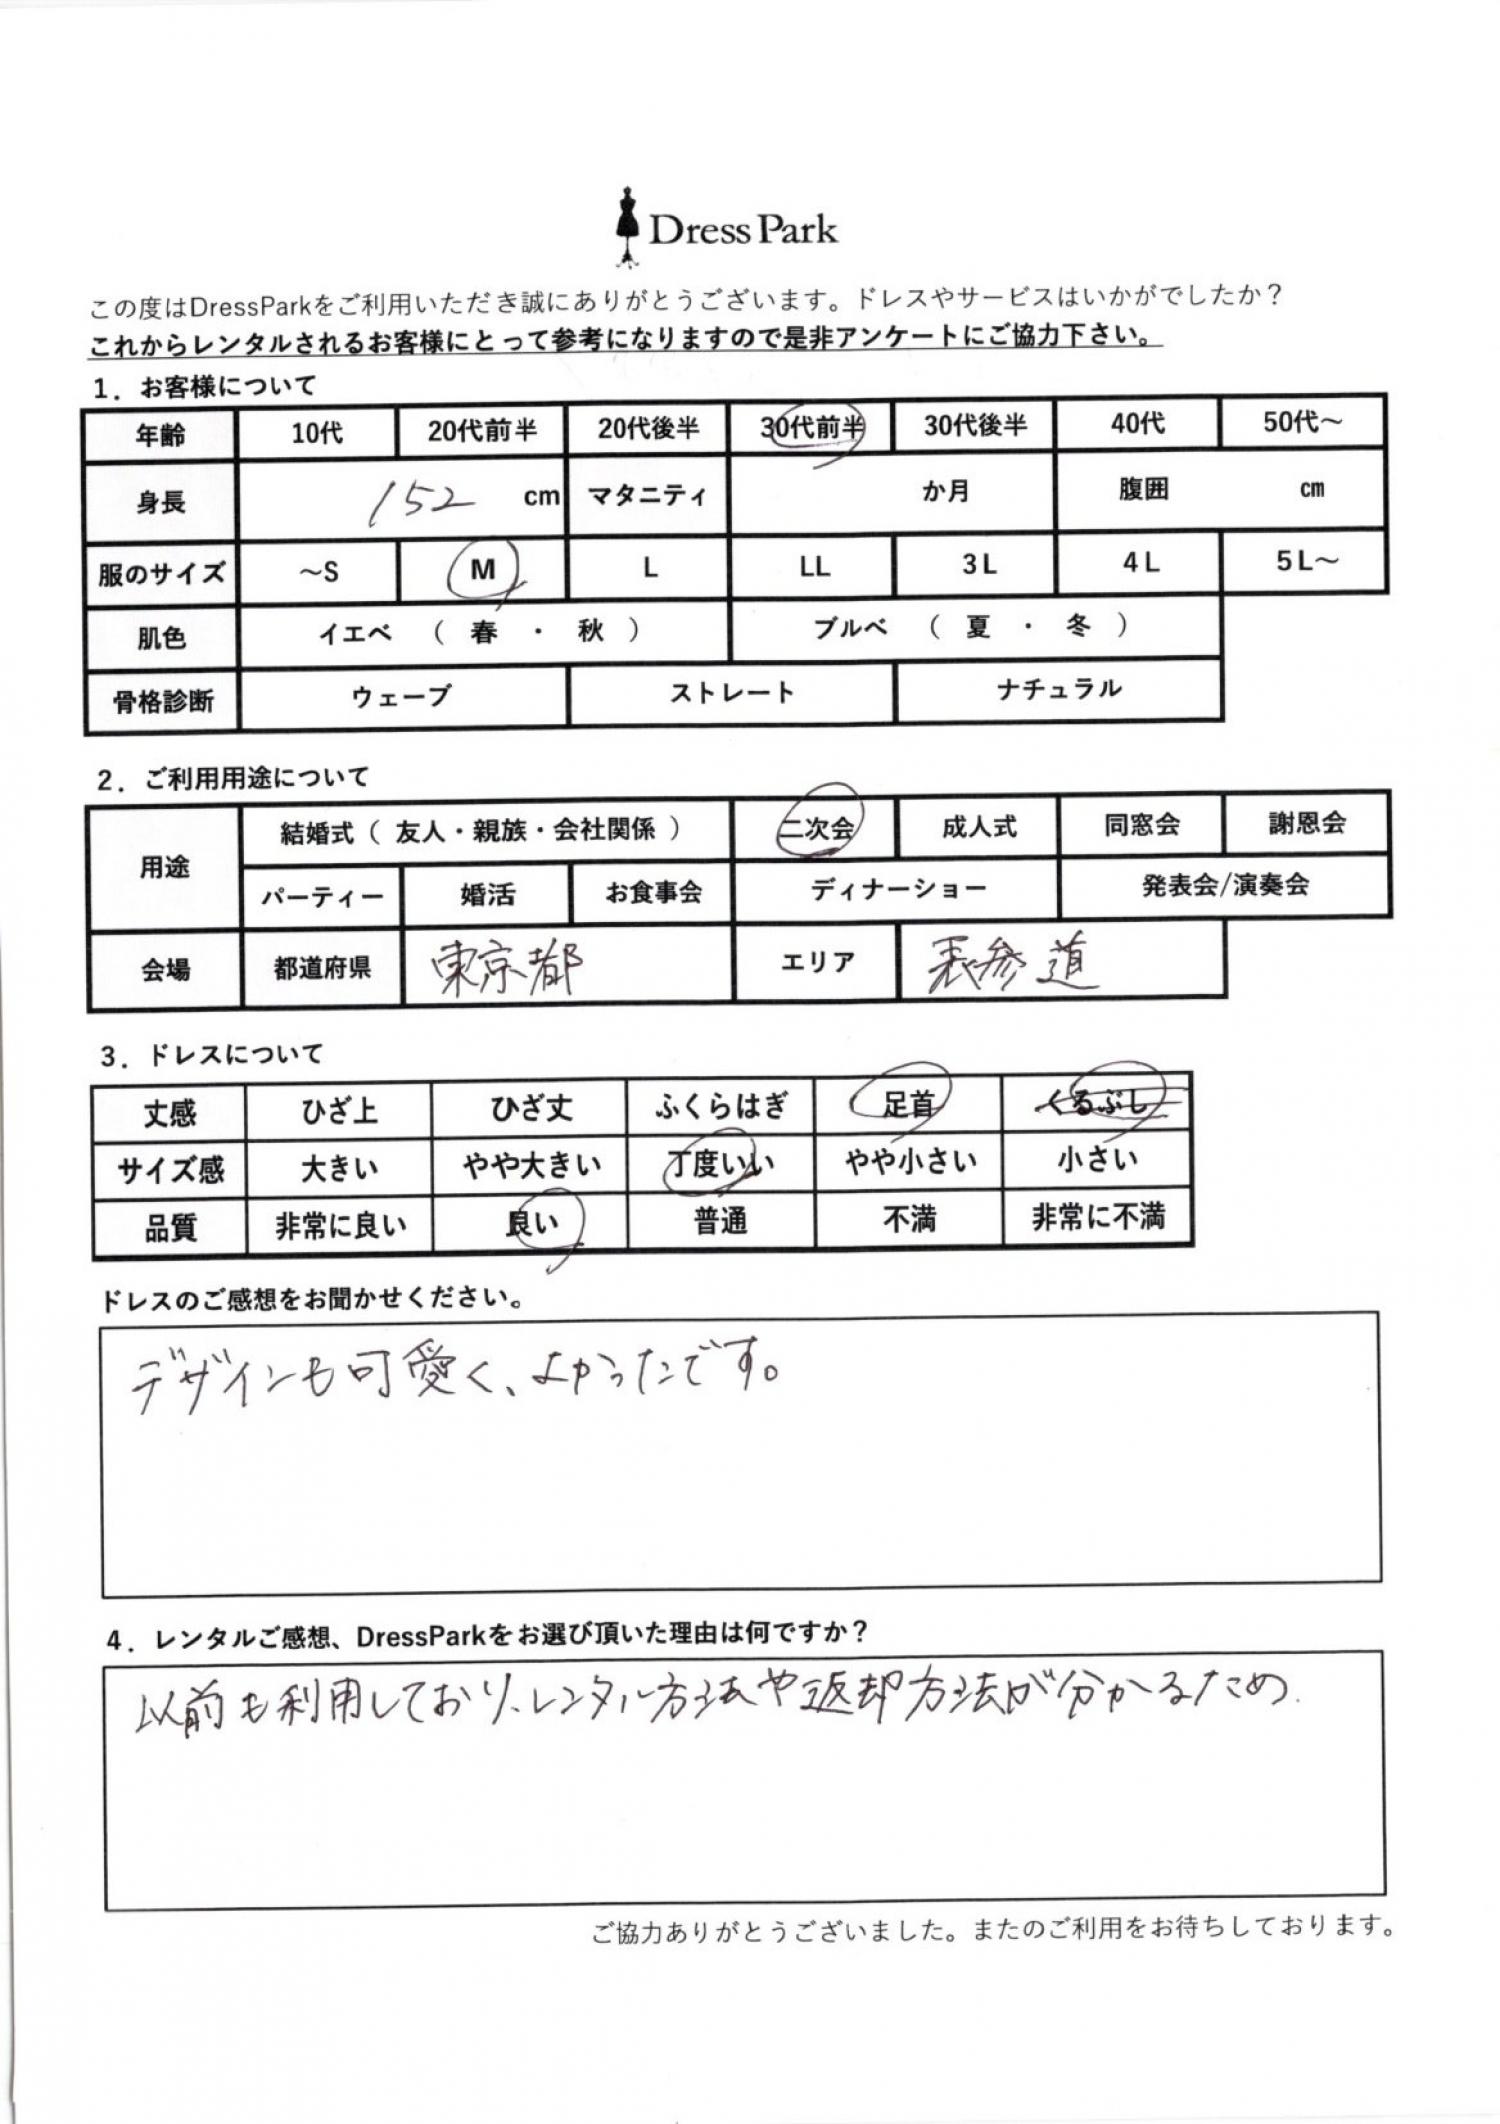 Dress Park
この度はDressParkをご利用いただき誠にありがとうございます。ドレスやサービスはいかがでしたか？
これからレンタルされるお客様にとって参考になりますので是非アンケートにご協力下さい。
1．お客様について
年齢 10代 20代前半 20代後半 30代前半 30代後半 40代 50代～
身長 152 cm マタニティ か月 腹囲 cm
服のサイズ ～S M L LL 3L 4L 5L～
肌色 イエベ （ 春 ・ 秋 ） ブルベ （ 夏 ・ 冬 ）
骨格診断 ウェーブ ストレート ナチュラル
2．ご利用用途について
用途 結婚式（ 友人・親族・会社関係 ） 二次会 成人式 同窓会 謝恩会
パーティー 婚活 お食事会 ディナーショー 発表会/演奏会
会場 都道府県 東京都 エリア 表参道
3．ドレスについて
丈感 ひざ上 ひざ丈 ふくらはぎ 足首 くるぶし
サイズ感 大きい やや大きい 丁度いい やや小さい 小さい
品質 非常に良い 良い 普通 不満 非常に不満
ドレスのご感想をお聞かせください。
デザインも可愛く、よかったです。
4．レンタルご感想、DressParkをお選び頂いた理由は何ですか？
以前も利用しており、レンタル方法や返却方法が分かるため.
ご協力ありがとうございました。またのご利用をお待ちしております。